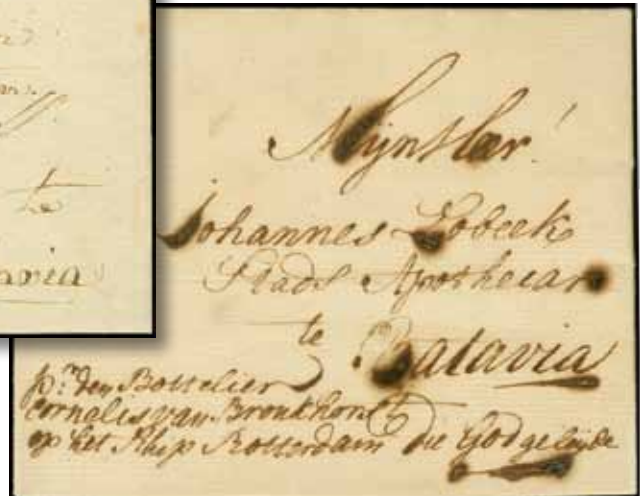 te
tavia
MijnHeer!
Johannes Lobeek
Stads Apothecar
te Batavia
p:r den Bottelier
Cornelis van Bronkhorst
op het Schip Rotterdam die God gelijde